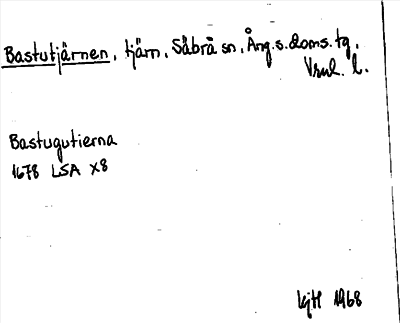 Bastutjärnen, tjärn, Säbrå sn, Ång.s.doms.tg,
Vrnl. l.
Bastugutierna
1678 LSA X8
KjH 1968